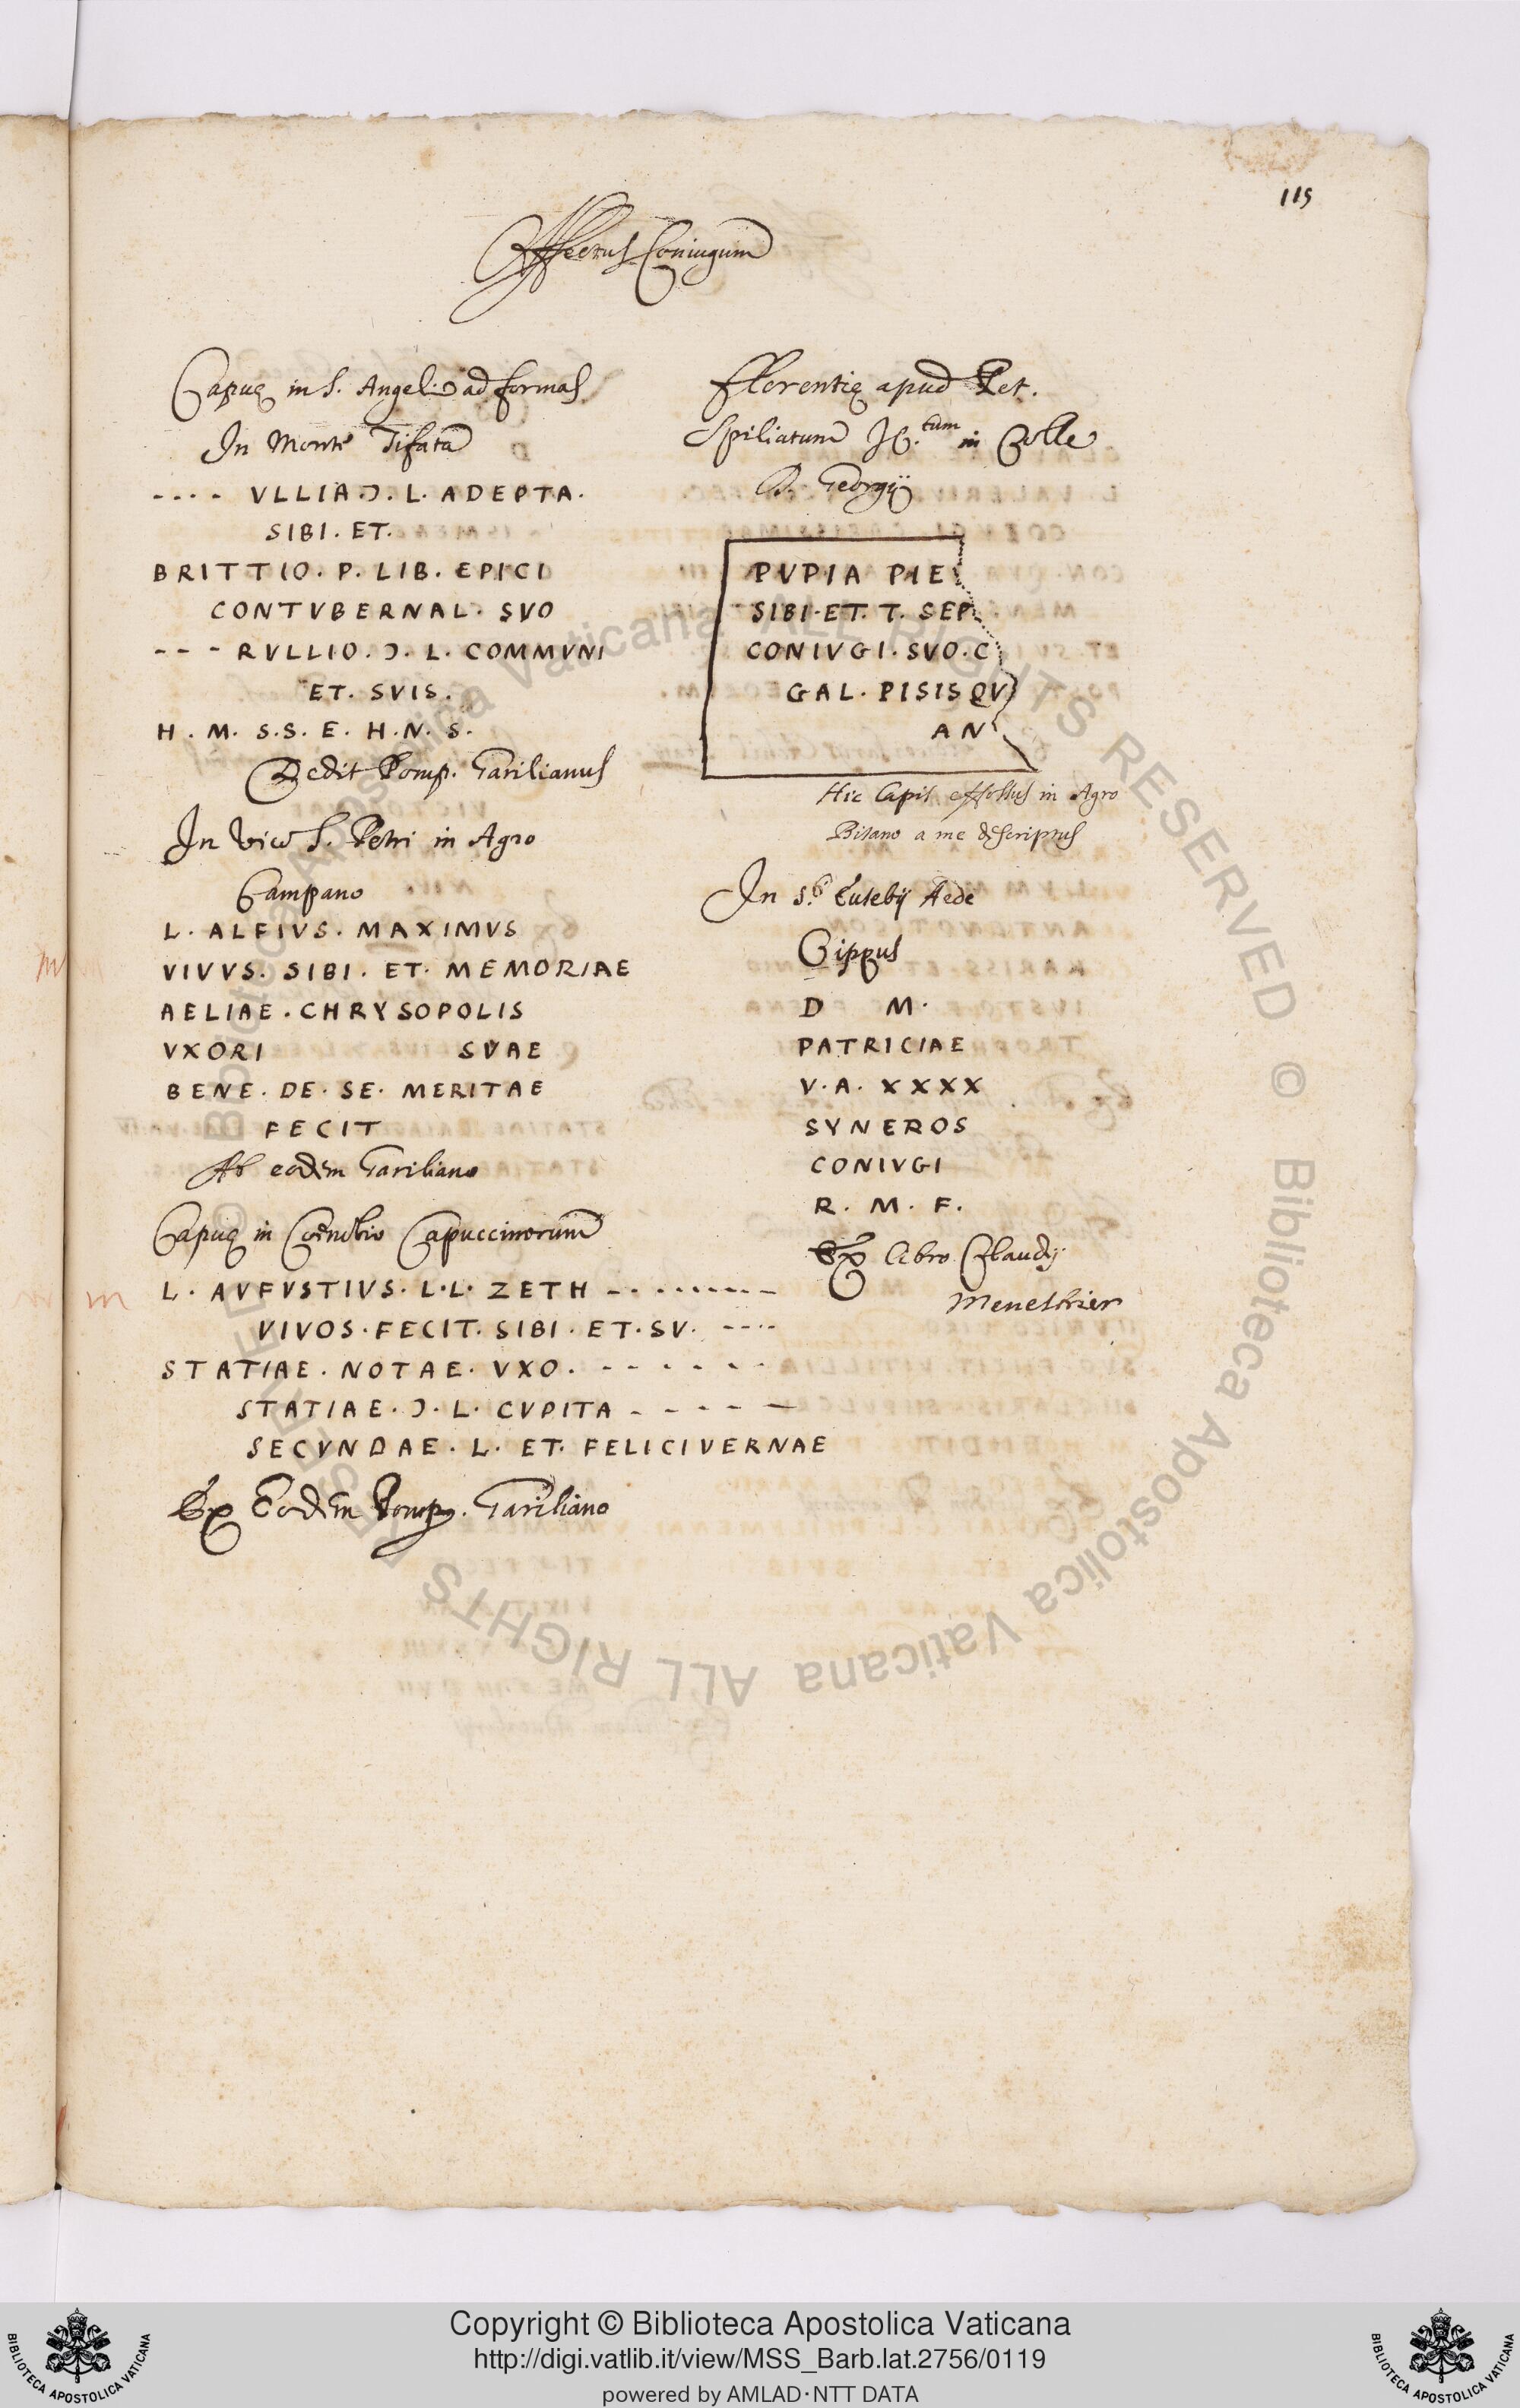 115
Affectus Coniugum
Capuę in S. Angelo ad formas
In Monte Tifata
---- VLLIA Ɔ. L. ADEPTA.
SIBI. ET.
BRITTIO. P. LIB. EPICI
CONTVBERNAL. SVO
--- RVLLIO. Ɔ. L. COMMVNI
ET. SVIS.
H. M. S.S. E. H. N. S.
Dedit Pomp. Garilianus
In vico S. Petri in Agro
Campano
L. ALFIVS. MAXIMVS
VIVVS. SIBI. ET. MEMORIAE
AELIAE. CHRYSOPOLIS
VXORI SVAE
BENE. DE. SE. MERITAE
FECIT
Ab eodem Gariliano
Capuę in Coenobio Capuccinorum
L. AVFVSTIVS. L. L. ZETH ---------
VIVOS. FECIT. SIBI. ET. SV. ----
STATIAE. NOTAE. VXO. ------
STATIAE. Ɔ. L. CVPITA -----
SECVNDAE. L. ET. FELICI VERNAE
Ex Eodem Pomp. Gariliano
Florentię apud Pet.
Spiliatum JC.tum in Colle
D. Georgij
PVPIA PIE
SIBI. ET. T. SEP
CONIVGI. SVO. C
GAL. PISIS QV
AN
Hic Lapis effossus in Agro
Pisano a me descriptus
In S. Eusebij Aede
Cippus
D M.
PATRICIAE
V. A. XXXX
SYNEROS
CONIVGI
R. M. F.
Ex libro Claudij
Menethrier
m
m
© Biblioteca Apostolica Vaticana ALL RIGHTS RESERVED © Biblioteca Apostolica Vaticana ALL RIGHTS RESERVED
Copyright © Biblioteca Apostolica Vaticana
http://digi.vatlib.it/view/MSS_Barb.lat.2756/0119
powered by AMLAD·NTT DATA
BIBLIOTECA APOSTOLICA VATICANA
BIBLIOTECA APOSTOLICA VATICANA